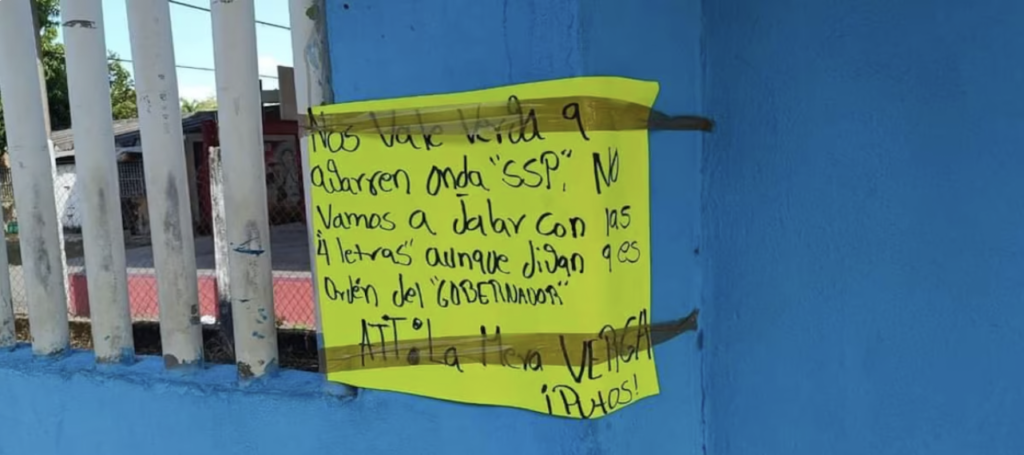 Nos Vale Verda q
agarren onda "SSP", NO
Vamos a Jalar con las
"4 letras" aunque digan q es
Ordén del "GOBERNADOR"
ATT: La Mera VERGA
¡PUTOS!